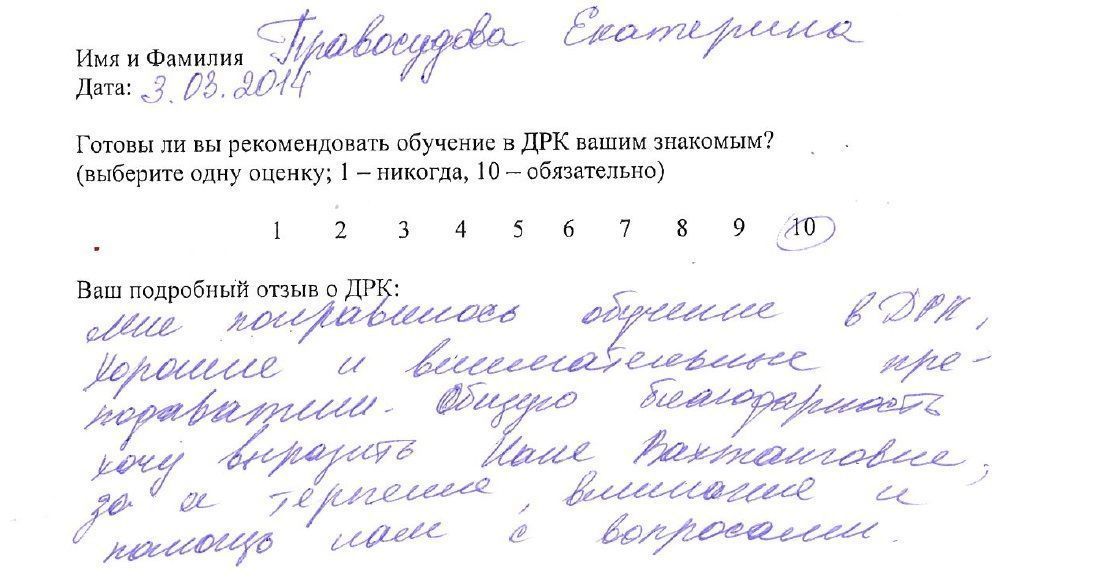 Имя и Фамилия Правосудова Екатерина
Дата: 3.03.2014
Готовы ли вы рекомендовать обучение в ДРК вашим знакомым?
(выберите одну оценку; 1 – никогда, 10 – обязательно)
1 2 3 4 5 6 7 8 9 10
Ваш подробный отзыв о ДРК:
Мне понравилось обучение в ДРК,
хорошие и внимательные пре-
подаватили. Общую благодарность
хочу выразить Нане Вахтанговне,
за терпение, внимание и
помощь нам с вопросами.